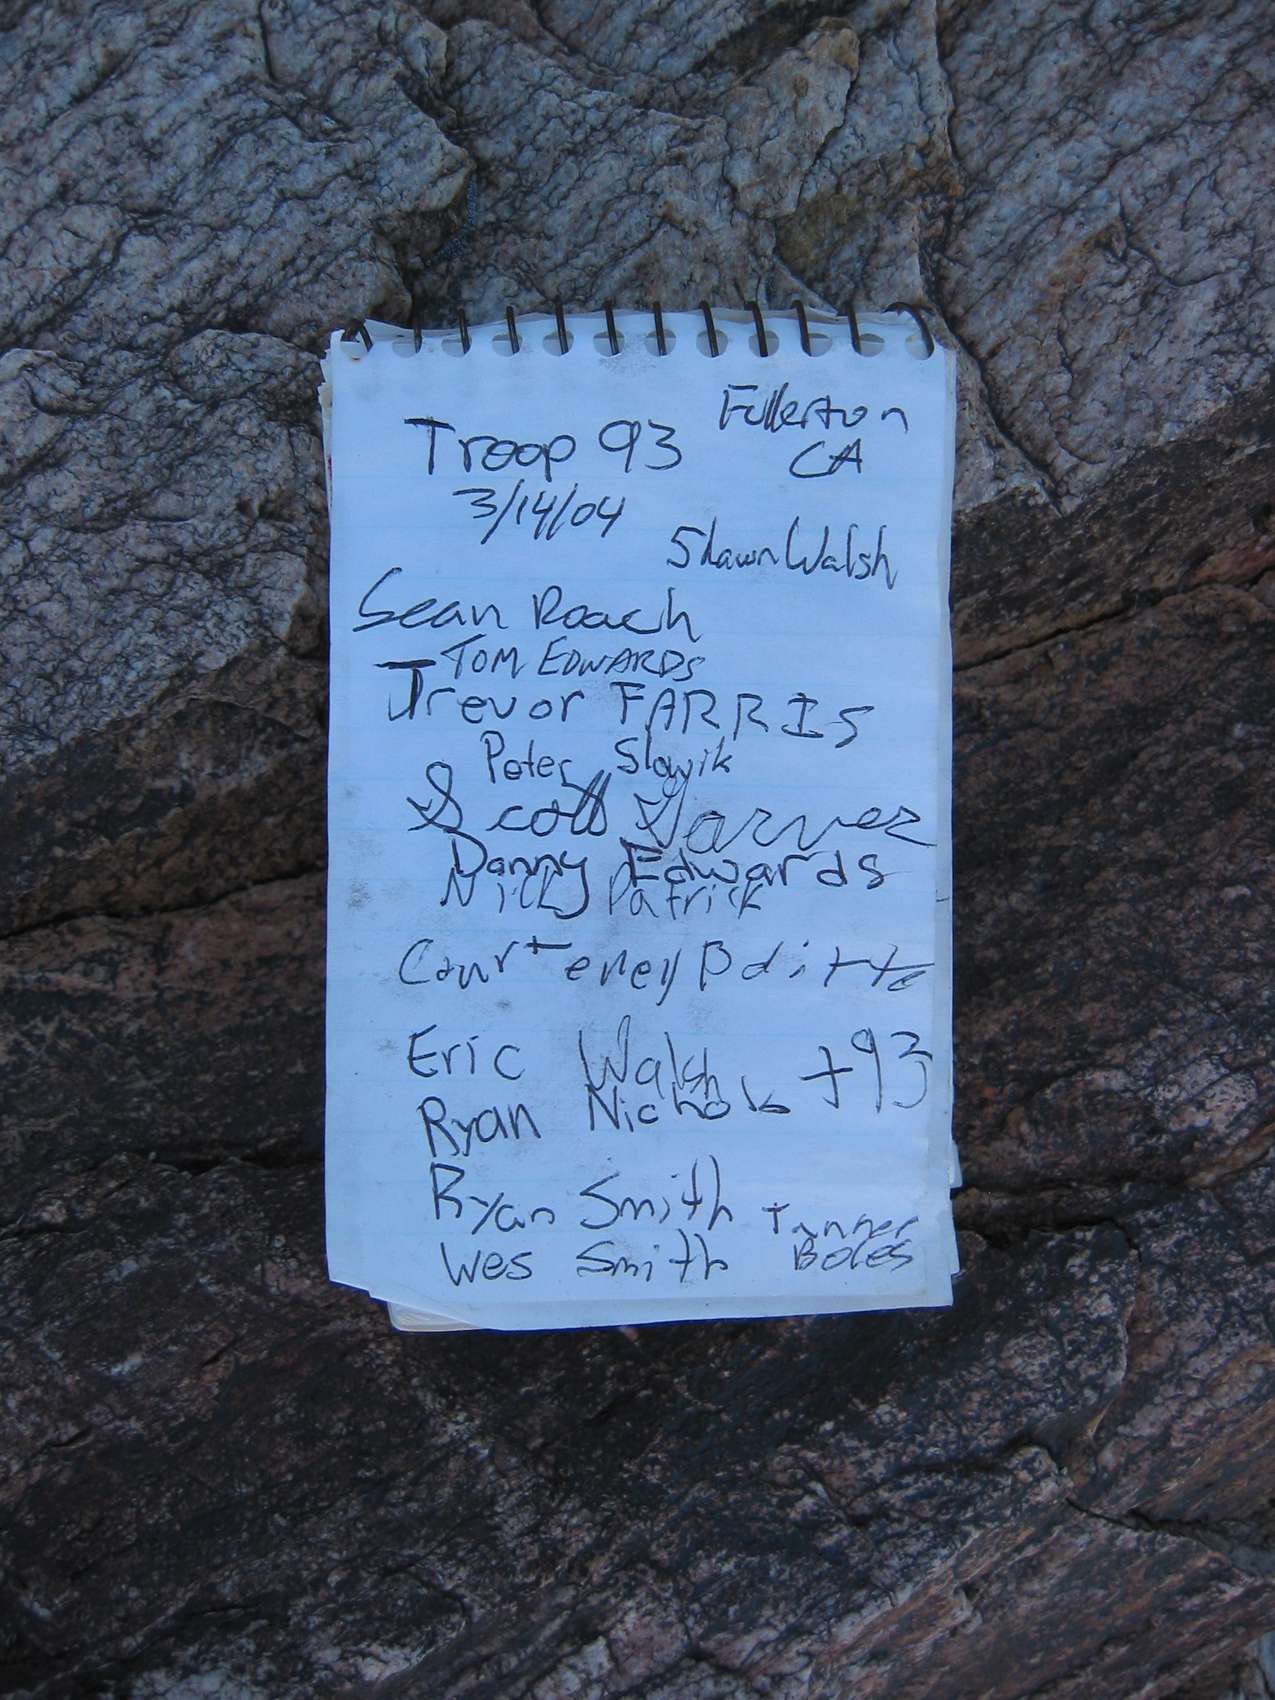 Fullerton
Troop 93 CA
3/14/04
Shawn Walsh
Sean Roach
TOM EDWARDS
Trevor FARRIS
Peter Slavik
Scott Garver
Danny Edwards
Nick Patrick
Courteney
Eric Walsh T93
Ryan Nichols
Ryan Smith Tanner
Wes Smith Boles